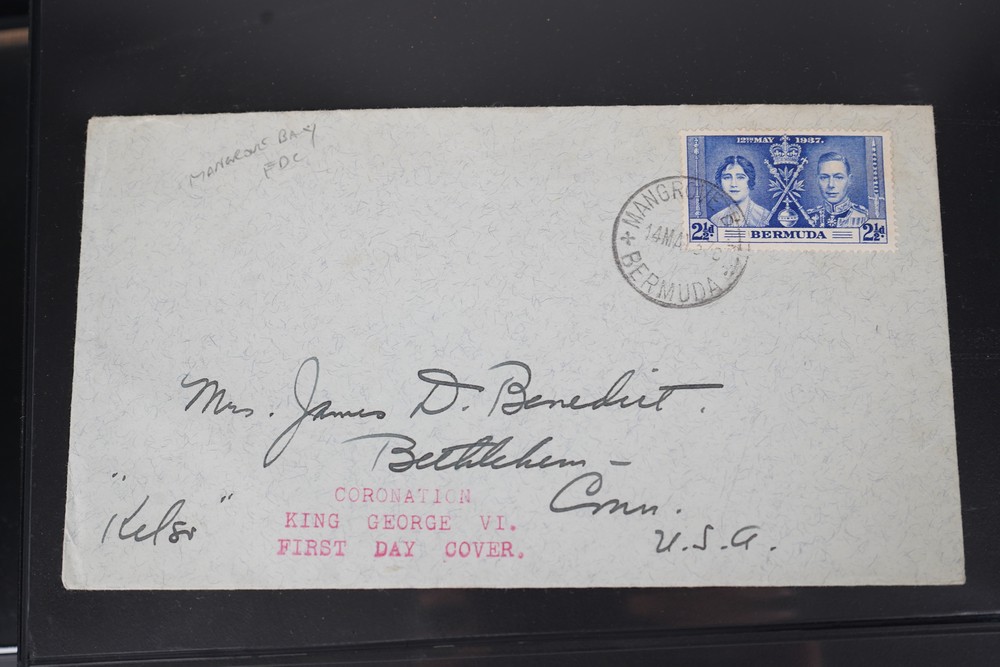 MANGROVE BAY
FDC
12TH MAY 1937.
2½d. BERMUDA 2½d.
MANGROVE
14 MAY
BERMUDA
Mrs. James D. Benedict.
Bethlehem –
Conn.
U.S.A.
"Kelso"
CORONATION
KING GEORGE VI.
FIRST DAY COVER.